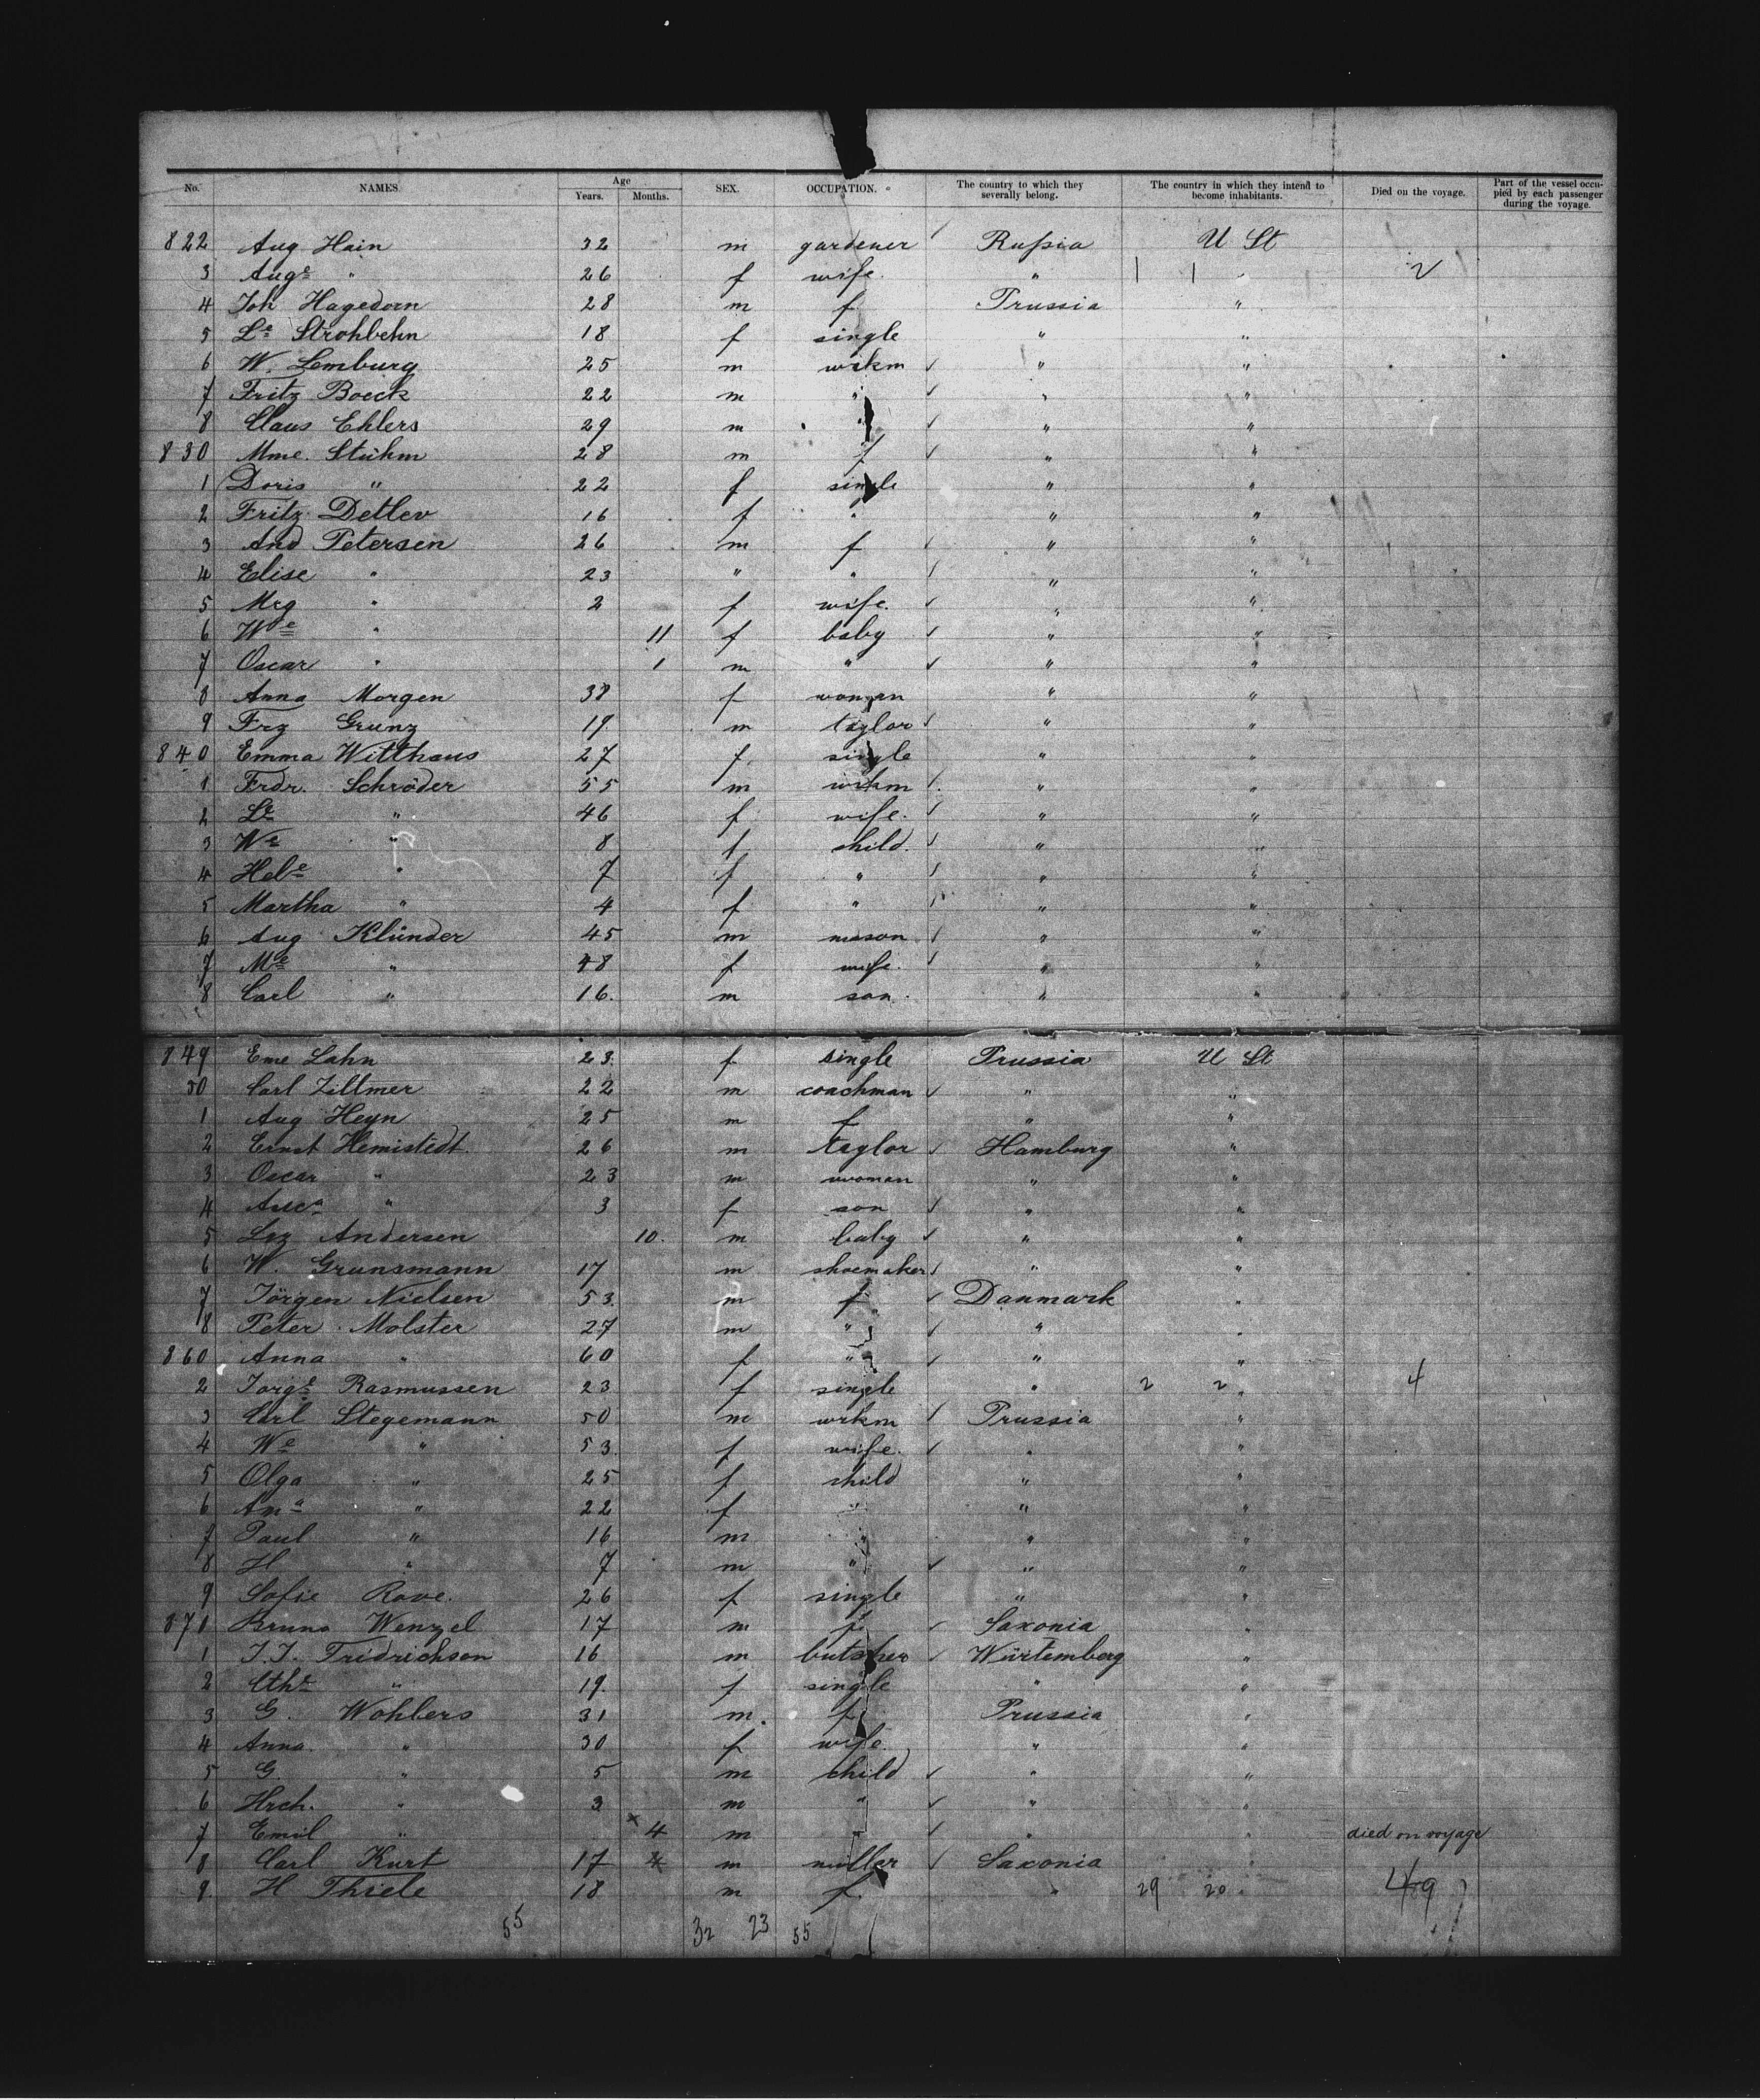 No. NAMES. Age Years. Months. SEX. OCCUPATION. The country to which they severally belong. The country in which they intend to become inhabitants. Died on the voyage. Part of the vessel occupied by each passenger during the voyage.
822 Aug Hain 32 m gardener Rußia U St
3 Auge " 26 f wife " 1 1 " 2
4 Joh Hagedorn 28 m f Prussia "
5 Le Strohbehn 18 f single " "
6 W. Lemburg 25 m wrkm " "
7 Fritz Boeck 22 m " " "
8 Claus Ehlers 29 m " " "
830 Mme. Stühm 28 m f " "
1 Doris " 22 f single " "
2 Fritz Detlev 16 f " " "
3 And Petersen 26 m f " "
4 Elise " 23 " " " "
5 Mrg " 2 f wife. " "
6 We " 11 f baby " "
7 Oscar " 1 m " " "
8 Anna Morgen 38 f woman " "
9 Frz Grunz 19. m taylor " "
840 Emma Witthaus 27 f. single " "
1 Frdr. Schröder 55 m wrkm " "
2 Le " 46 f wife. " "
3 We " 8 f child. " "
4 Hele " 7 f " " "
5 Martha " 4 f " " "
6 Aug Klünder 45 m mason " "
7 Me " 48 f wife. " "
8 Carl " 16. m son. " "
849 Eme Lahn 23. f single Prussia U St
50 Carl Zillmer 22 m coachman " "
1 Aug Heyn 25 m f " "
2 Ernst Hemistedt. 26 m taylor Hamburg "
3 Oscar " 23 m woman " "
4 " 3 f son " "
5 Lrz Andersen 10. m baby " "
6 W. Grunsmann 17 m shoemaker " "
7 Jörgen Nielsen 53. m f Danmark "
8 Peter Molster 27 m " " "
860 Anna " 60 f " " "
2 Jorge Rasmussen 23 f single " 2 2 " 4
3 Carl Stegemann 50 m wrkm Prussia "
4 We " 53. f wife. " "
5 Olga " 25 f child " "
6 Ama " 22 f " " "
7 Paul " 16 m " " "
8 H " 7 m " " "
9 Sofie Rave. 26 f single " "
870 Bruno Wenzel 17 m f Saxonia "
1 J. J. Fridrichson 16 m butcher Würtemberg "
2 Cthe " 19. f single " "
3 G. Wohlers 31 m. f Prussia "
4 Anna. " 30 f wife. " "
5 G. " 5 m child " "
6 Hrch. " 3 m " " "
7 Emil " x 4 m " " " died on voyage
8 Carl Kurt 17 m miller Saxonia "
9. H Thiele 18 m f. " 29 20 " 49
55 32 23 55